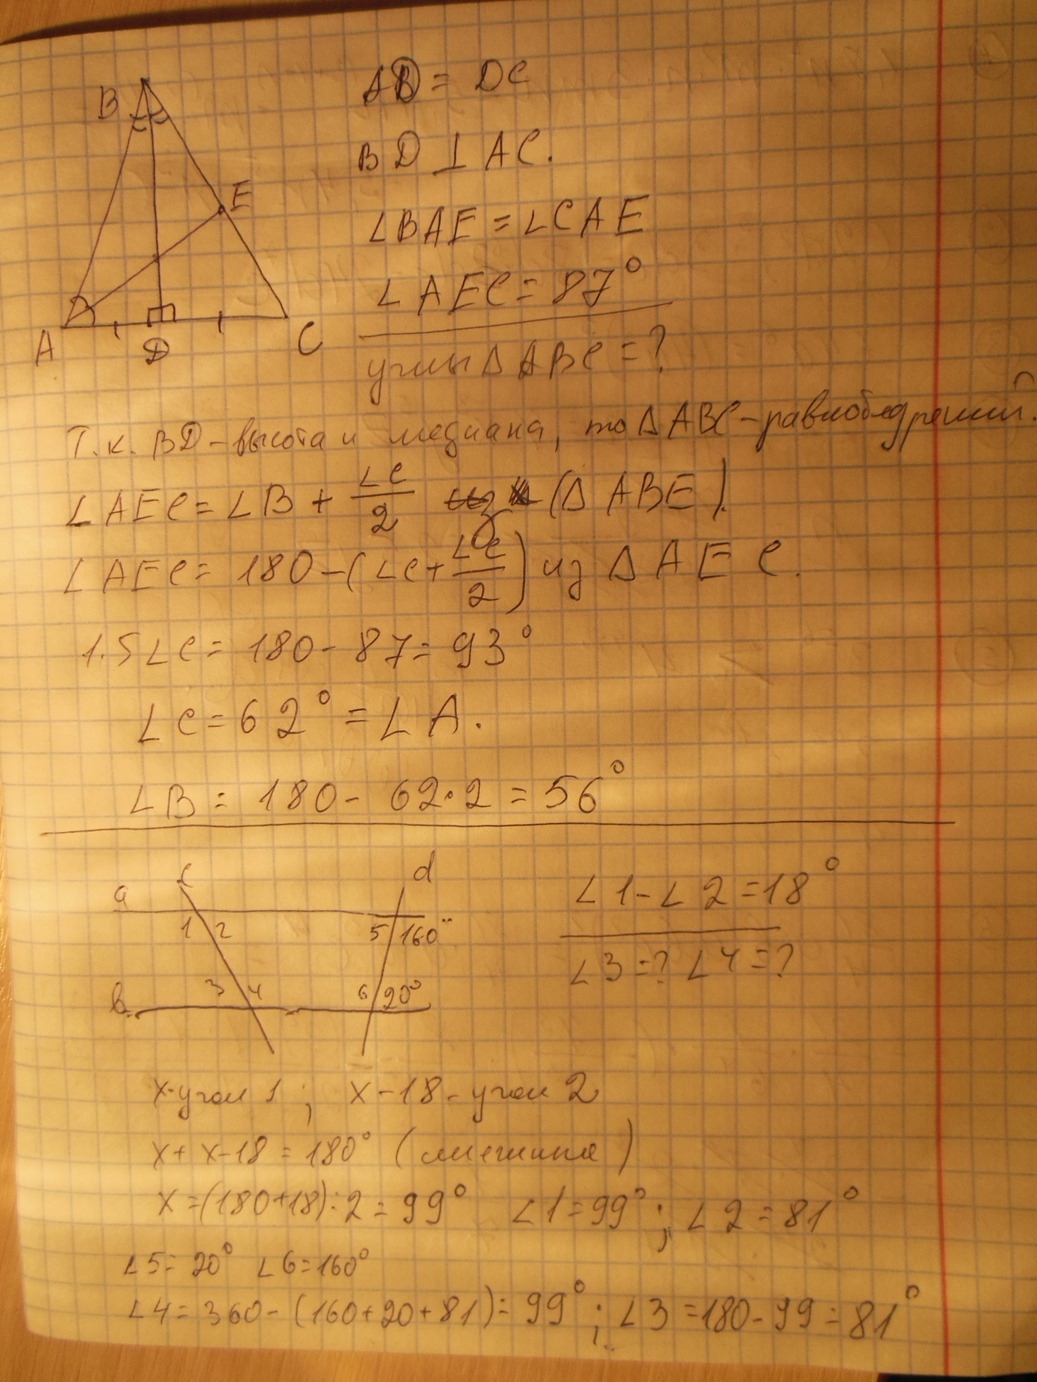 B
E
A
D
C
AD = DC
BD ⊥ AC.
∠BAE = ∠CAE
∠AEC = 87°
углы Δ ABC = ?
Т.к. BD - высота и медиана, то Δ ABC - равнобедренный.
∠AEC = ∠B + ∠C/2 (Δ ABE).
∠AEC = 180 - (∠C + ∠C/2) из Δ AEC.
1.5∠C = 180 - 87 = 93°
∠C = 62° = ∠A.
∠B = 180 - 62·2 = 56°
a c d
1 2 5 160°
b 3 4 6 20°
∠1 - ∠2 = 18°
∠3 = ? ∠4 = ?
x - угол 1 ; x - 18 - угол 2
x + x - 18 = 180° (смежные)
x = (180 + 18) : 2 = 99° ∠1 = 99° ; ∠2 = 81°
∠5 = 20° ∠6 = 160°
∠4 = 360 - (160 + 20 + 81) = 99° ; ∠3 = 180 - 99 = 81°